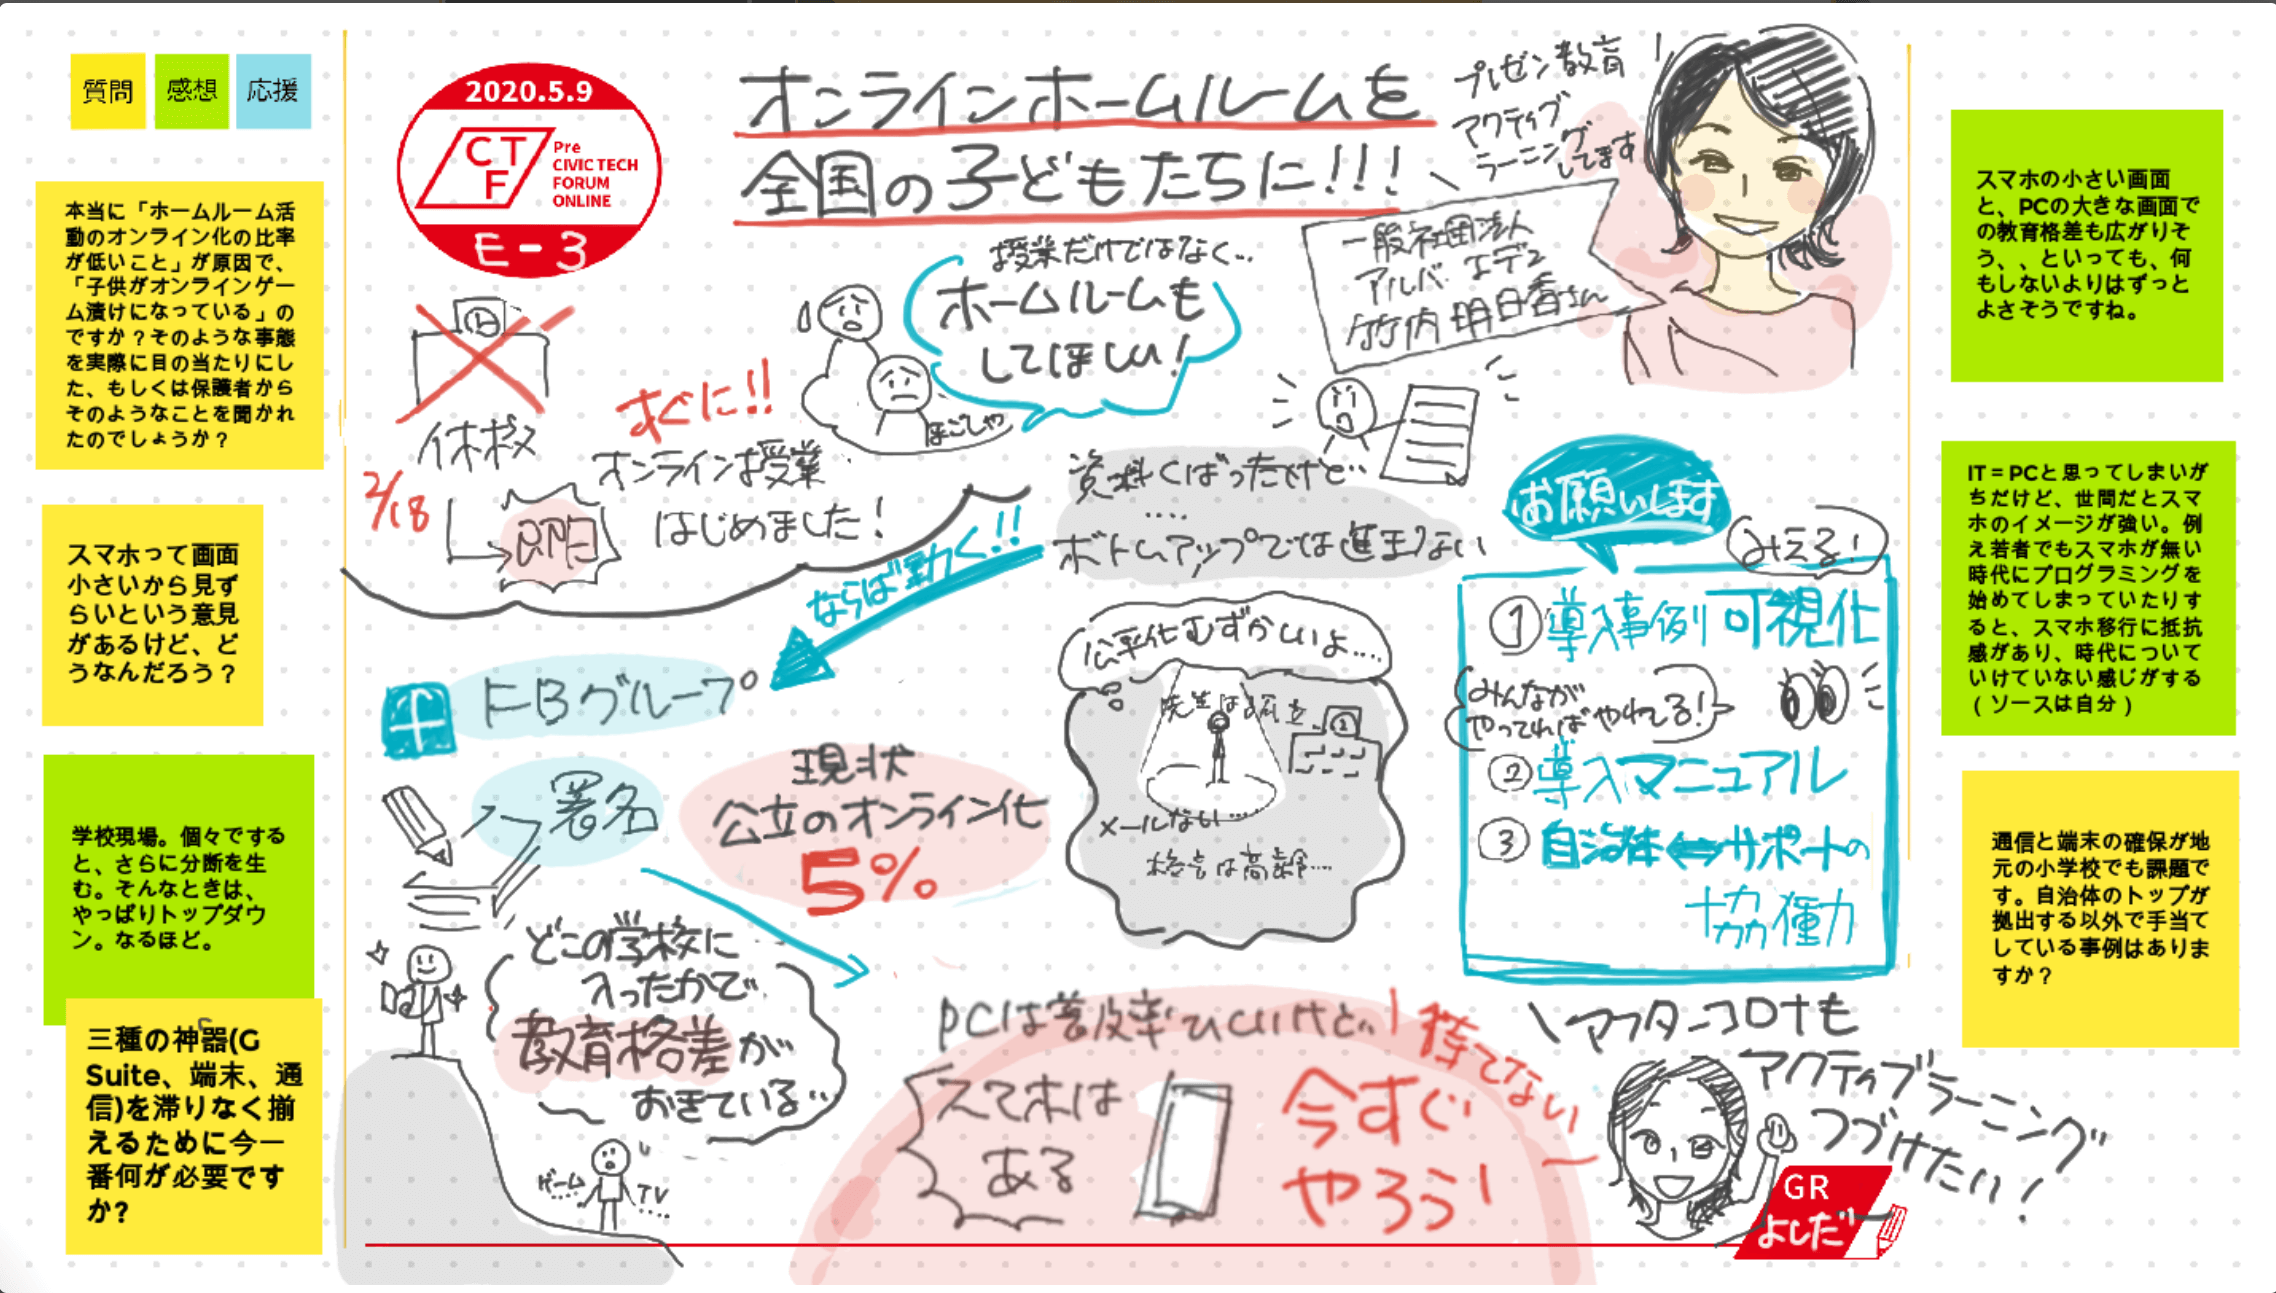 質問
感想
応援
本当に「ホームルーム活
動のオンライン化の比率
が低いこと」が原因で、
「子供がオンラインゲー
ム漬けになっている」の
ですか？そのような事態
を実際に目の当たりにし
た、もしくは保護者から
そのようなことを聞かれ
たのでしょうか？
スマホって画面
小さいから見ず
らいという意見
があるけど、ど
うなんだろう？
学校現場。個々でする
と、さらに分断を生
む。そんなときは、
やっぱりトップダウ
ン。なるほど。
三種の神器(G
Suite、端末、通
信)を滞りなく揃
えるために今一
番何が必要です
か?
2020.5.9
CT
F
Pre
CIVIC TECH
FORUM
ONLINE
E-3
オンラインホームルームを
全国の子どもたちに!!!
プレゼン教育
アクティブ
ラーニング
してます
一般社団法人
アルバ・エデュ
竹内明日香さん
授業だけではなく..
ホームルームも
してほしい!
ほごしゃ
休校
2/18
すぐに!!
オンライン授業
はじめました!
資料くばったけど…
....
ボトムアップでは進まない
ならば動く!!
FBグループ
署名
現状
公立のオンライン化
5%
公平化むずかしいよ....
先生は孤立
メールない...
校長は高齢...
お願いします
みえる!
① 導入事例 可視化
みんなが
やってればやれる!
② 導入マニュアル
③ 自治体⇔サポートの
協働
どこの学校に
入ったかで
教育格差が
おきている..
ゲーム
....
TV
....
PCは普及率ひくいけど..
スマホは
ある
待てない
今すぐ
やろう!
アフターコロナも
アクティブラーニング
つづけたい!
GR
よしだ
スマホの小さい画面
と、PCの大きな画面で
の教育格差も広がりそ
う、、といっても、何
もしないよりはずっと
よさそうですね。
IT＝PCと思ってしまいが
ちだけど、世間だとスマ
ホのイメージが強い。例
え若者でもスマホが無い
時代にプログラミングを
始めてしまっていたりす
ると、スマホ移行に抵抗
感があり、時代について
いけていない感じがする
(ソースは自分)
通信と端末の確保が地
元の小学校でも課題で
す。自治体のトップが
拠出する以外で手当て
している事例はありま
すか？